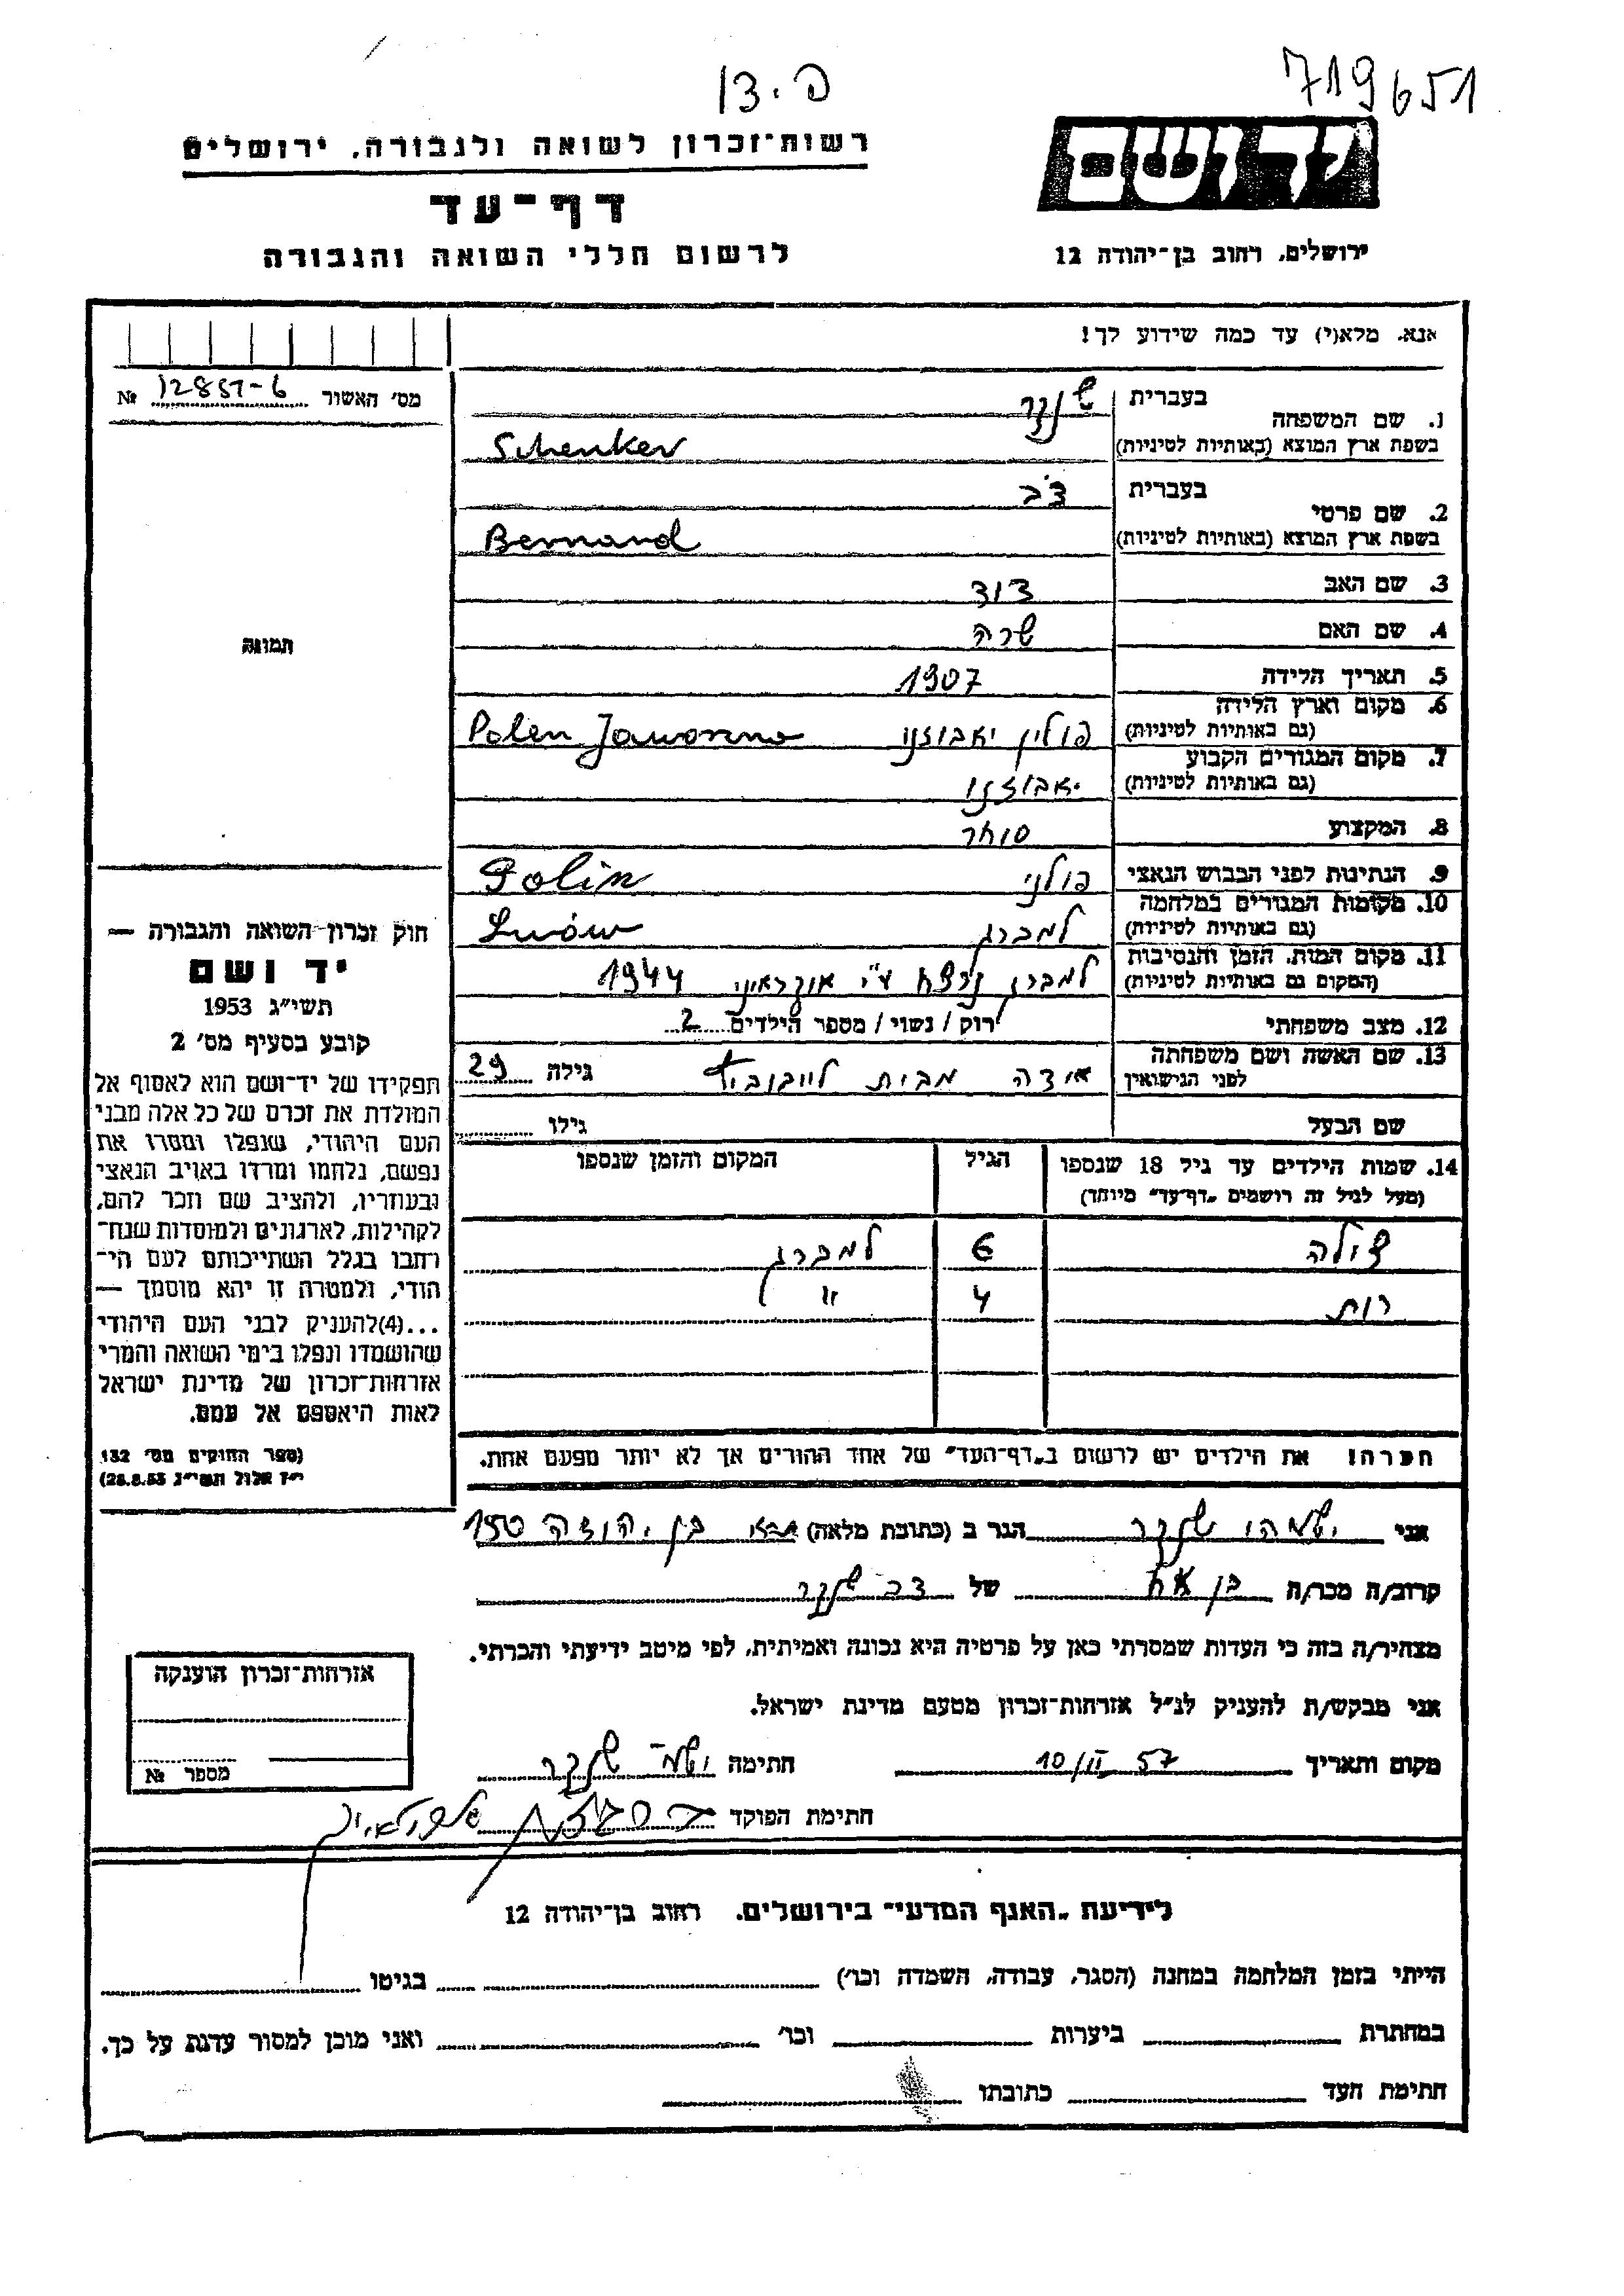 719651
פ. 13
יד ושם
רשות־זכרון לשואה ולגבורה, ירושלים
דף־עד
לרשום חללי השואה והגבורה
ירושלים, רחוב בן־יהודה 12
אנא, מלא(י) עד כמה שידוע לך!
מס׳ האשור 12887-6 №
1. שם המשפחה בעברית שנקר
בשפת ארץ המוצא (באותיות לטיניות) Schenker
2. שם פרטי בעברית דב
בשפת ארץ המוצא (באותיות לטיניות) Bernard
3. שם האב דוד
4. שם האם שרה
תמונה
5. תאריך הלידה 1907
6. מקום וארץ הלידה (גם באותיות לטיניות) פולין יאבוזנו Polen Jaworzno
7. מקום המגורים הקבוע (גם באותיות לטיניות) יאבוזנו
8. המקצוע סוחר
9. הנתינות לפני הכבוש הנאצי פולני Polin
10. מקומות המגורים במלחמה (גם באותיות לטיניות) למברג Lwów
11. מקום המות, הזמן והנסיבות (המקום גם באותיות לטיניות) למברג נרצח ע"י אוקראיני 1944
12. מצב משפחתי רוק / נשוי / מספר הילדים 2
13. שם האשה ושם משפחתה לפני הנישואין אידה מבית לייבוביץ גילה 29
שם הבעל גילו
14. שמות הילדים עד גיל 18 שנספו הגיל המקום והזמן שנספו
(מעל לגיל זה רושמים „דף־עד" מיוחד)
צילה 6 למברג
רות 4 "
הערה! את הילדים יש לרשום ב„דף־העד" של אחד ההורים אך לא יותר מפעם אחת.
חוק זכרון השואה והגבורה —
יד ושם
תשי״ג 1953
קובע בסעיף מס׳ 2
תפקידו של יד־ושם הוא לאסוף אל
המולדת את זכרם של כל אלה מבני
העם היהודי, שנפלו ומסרו את
נפשם, נלחמו ומרדו באויב הנאצי
ובעוזריו, ולהציב שם וזכר להם,
לקהילות, לארגונים ולמוסדות שנח־
רחבו בגלל השתייכותם לעם הי־
הודי, ולמטרה זו יהא מוסמך —
...(4)להעניק לבני העם היהודי
שהושמדו ונפלו בימי השואה והמרי
אזרחות־זכרון של מדינת ישראל
לאות היאספם אל עמם.
(ספר החוקים מס׳ 132
י״ז אלול תשי״ג 28.8.53)
אני שנקר הגר ב (כתובת מלאה) בן יהודה 150
קרוב/ה מכר/ה בן אח של דב שנקר
מצהיר/ה בזה כי העדות שמסרתי כאן על פרטיה היא נכונה ואמיתית, לפי מיטב ידיעתי והכרתי.
אני מבקש/ת להעניק לנ״ל אזרחות־זכרון מטעם מדינת ישראל.
מקום ותאריך 10/II 57 חתימה שנקר
חתימת הפוקד
אזרחות־זכרון הוענקה
מספר №
לידיעת „האגף המדעי״ בירושלים, רחוב בן־יהודה 12
הייתי בזמן המלחמה במחנה (הסגר, עבודה, השמדה וכו׳) בגיטו
במחתרת ביערות וכו׳ ואני מוכן למסור עדות על כך.
חתימת העד כתובתו